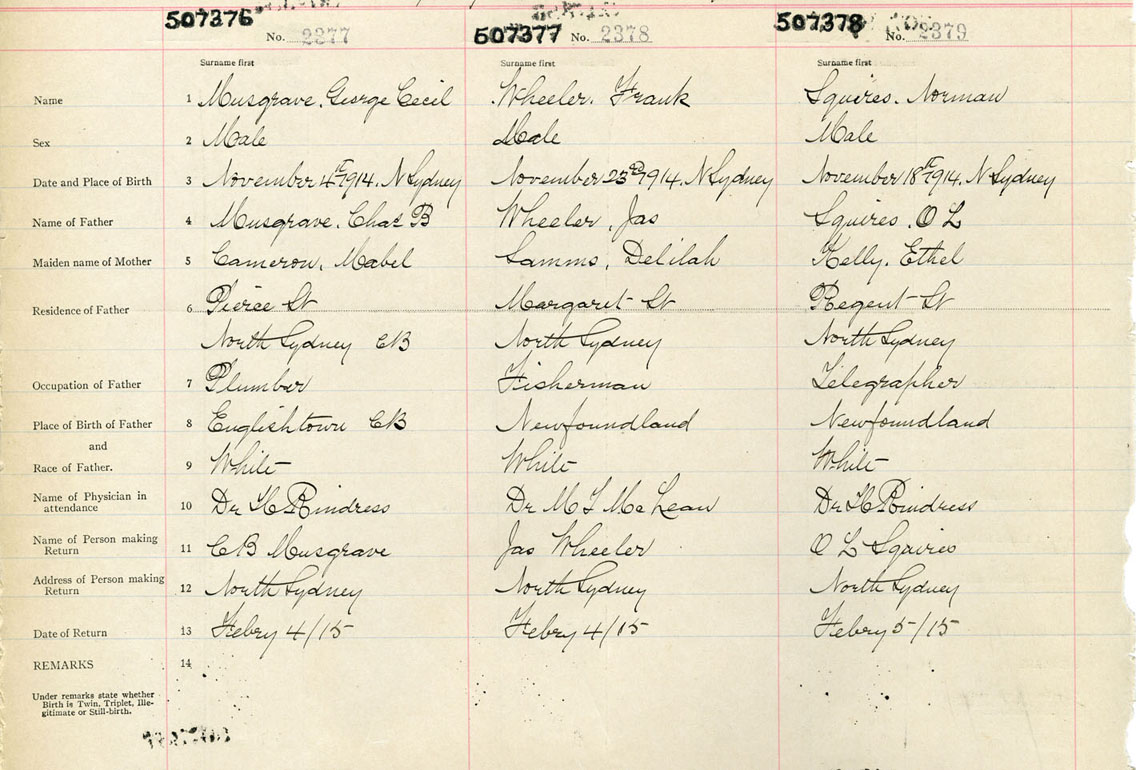 507376 No. 2377 507377 No. 2378 507378 No. 2379
Surname first Surname first Surname first
Name 1 Musgrave, George Cecil Wheeler, Frank Squires, Norman
Sex 2 Male Male Male
Date and Place of Birth 3 November 4th 1914. N Sydney November 23rd 1914. N Sydney November 18th 1914. N Sydney
Name of Father 4 Musgrave, Chas B Wheeler, Jas Squires, O L
Maiden name of Mother 5 Cameron, Mabel Samms, Delilah Kelly, Ethel
Residence of Father 6 Pierce St Margaret St Regent St
North Sydney CB North Sydney North Sydney
Occupation of Father 7 Plumber Fisherman Telegrapher
Place of Birth of Father 8 Englishtown CB Newfoundland Newfoundland
and
Race of Father. 9 White White White
Name of Physician in attendance 10 Dr H Rindress Dr M T McLean Dr H Rindress
Name of Person making Return 11 CB Musgrave Jas Wheeler O L Squires
Address of Person making Return 12 North Sydney North Sydney North Sydney
Date of Return 13 Febry 4/15 Febry 4/15 Febry 5/15
REMARKS 14
Under remarks state whether
Birth is Twin, Triplet, Ille-
gitimate or Still-birth.